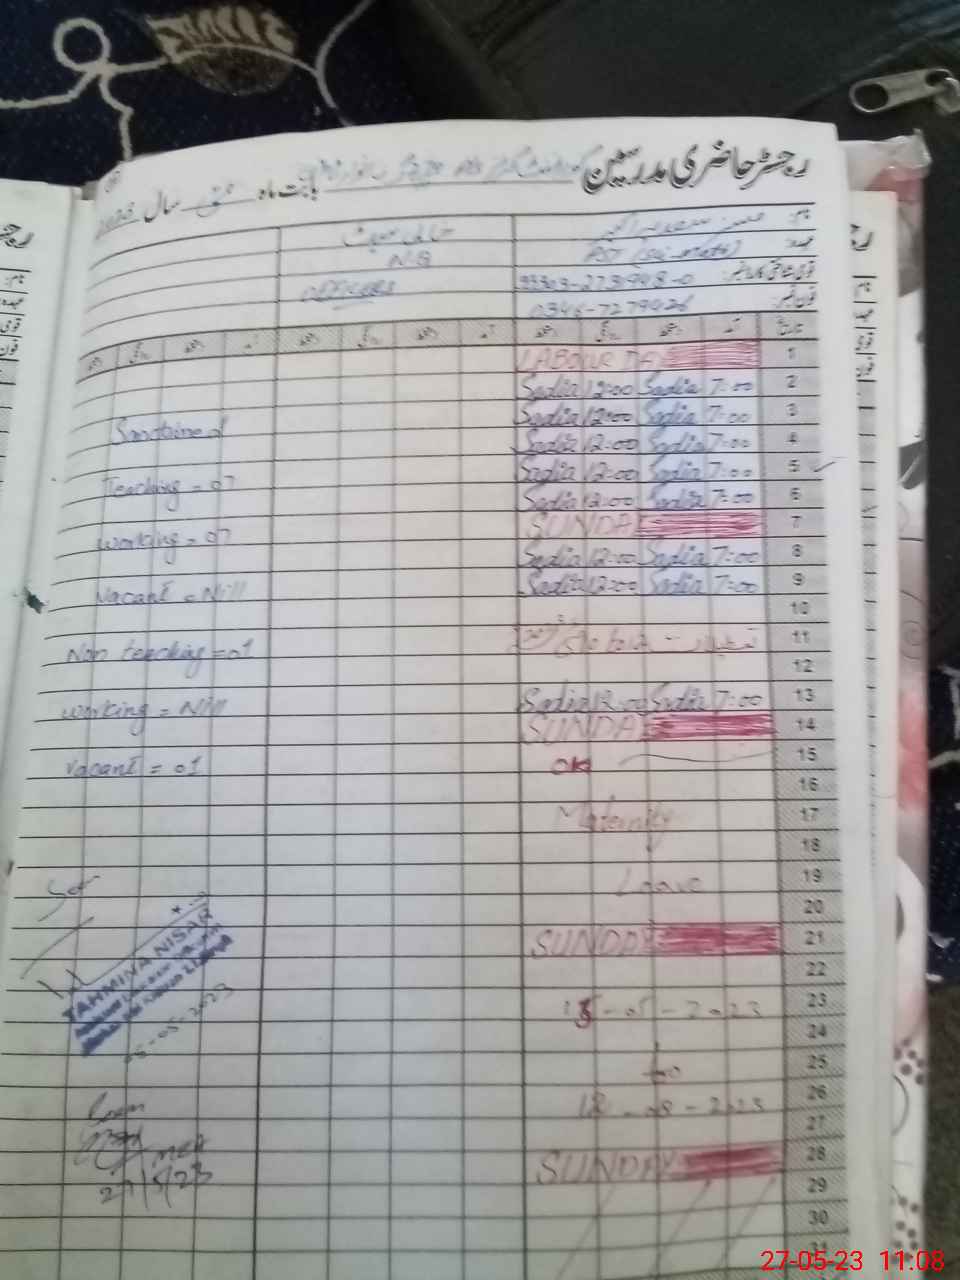 رجسٹر حاضری مدرسین
بابت ماہ مئی سال 2023
نام:
عہدہ: PST (Sci-math)
قومی شناختی کارڈ نمبر:
فون نمبر: 0346-7279426
خالی سیٹ
OFFICERS
تاریخ آمد دستخط روانگی دستخط آمد دستخط روانگی دستخط آمد دستخط روانگی دستخط
1 LABOUR DAY
2 7:00 Sadia 12:00 Sadia
3 7:00 Sadia 12:00 Sadia
4 7:00 Sadia 12:00 Sadia
5 7:00 Sadia 12:00 Sadia
6 7:00 Sadia 12:00 Sadia
7 SUNDAY
8 7:00 Sadia 12:00 Sadia
9 7:00 Sadia 12:00 Sadia
10
11 تعطیلات
12
13 7:00 Sadia 12:00 Sadia
14 SUNDAY
15
16
17 Maternity
18
19 Leave
20
21 SUNDAY
22
23 15-05-2023
24
25 to
26 12-08-2023
27
28 SUNDAY
29
30
31
Teaching = 07
Working = 07
Vacant = Nill
Non teaching = 01
Working = Nill
Vacant = 01
TAHMINA NISAR
MEA
27/5/23
27-05-23 11:08